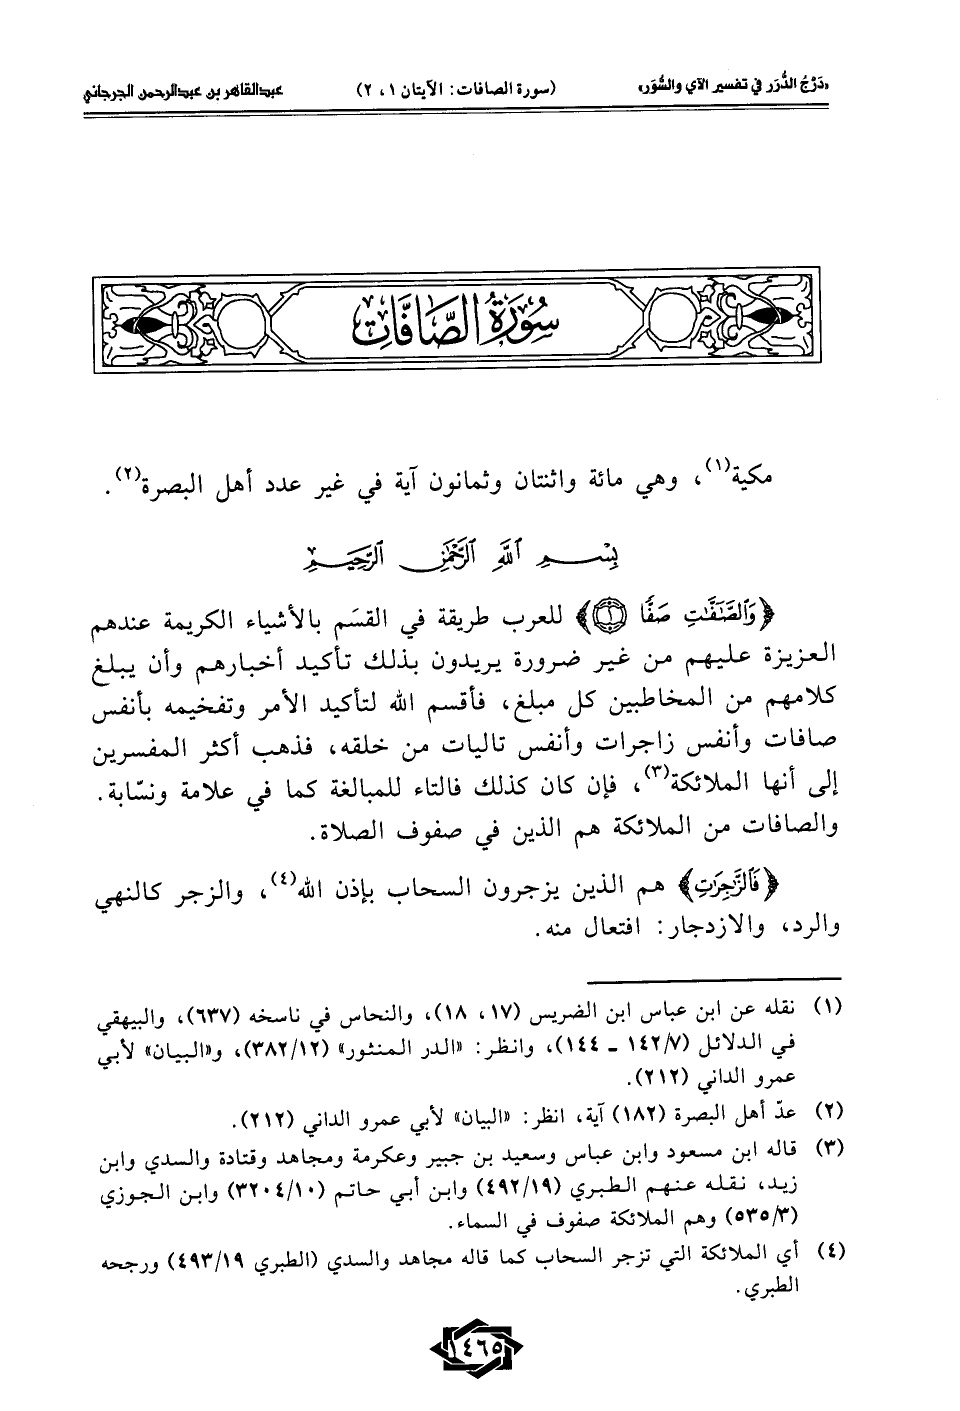 «دَرْجُ الدُّرَر في تفسير الآي والسُّوَر»
(سورة الصافات: الآيتان ١، ٢)
عبدالقاهر بن عبدالرحمن الجرجاني
سُورَةُ الصَّافَّاتِ
مكية(١)، وهي مائة واثنتان وثمانون آية في غير عدد أهل البصرة(٢).
بِسْمِ ٱللَّهِ ٱلرَّحْمَٰنِ ٱلرَّحِيمِ
﴿وَٱلصَّٰٓفَّٰتِ صَفًّا ۝١﴾ للعرب طريقة في القسَم بالأشياء الكريمة عندهم
العزيزة عليهم من غير ضرورة يريدون بذلك تأكيد أخبارهم وأن يبلغ
كلامهم من المخاطبين كل مبلغ، فأقسم الله لتأكيد الأمر وتفخيمه بأنفس
صافات وأنفس زاجرات وأنفس تاليات من خلقه، فذهب أكثر المفسرين
إلى أنها الملائكة(٣)، فإن كان كذلك فالتاء للمبالغة كما في علامة ونسّابة.
والصافات من الملائكة هم الذين في صفوف الصلاة.
﴿فَٱلزَّٰجِرَٰتِ﴾ هم الذين يزجرون السحاب بإذن الله(٤)، والزجر كالنهي
والرد، والازدجار: افتعال منه.
(١) نقله عن ابن عباس ابن الضريس (١٧، ١٨)، والنحاس في ناسخه (٦٣٧)، والبيهقي
في الدلائل (١٤٢/٧ ـ ١٤٤)، وانظر: «الدر المنثور» (٣٨٢/١٢)، و«البيان» لأبي
عمرو الداني (٢١٢).
(٢) عدّ أهل البصرة (١٨٢) آية، انظر: «البيان» لأبي عمرو الداني (٢١٢).
(٣) قاله ابن مسعود وابن عباس وسعيد بن جبير وعكرمة ومجاهد وقتادة والسدي وابن
زيد، نقله عنهم الطبري (٤٩٢/١٩) وابن أبي حاتم (٣٢٠٤/١٠) وابن الجوزي
(٥٣٥/٣) وهم الملائكة صفوف في السماء.
(٤) أي الملائكة التي تزجر السحاب كما قاله مجاهد والسدي (الطبري ٤٩٣/١٩) ورجحه
الطبري.
١٤٦٥